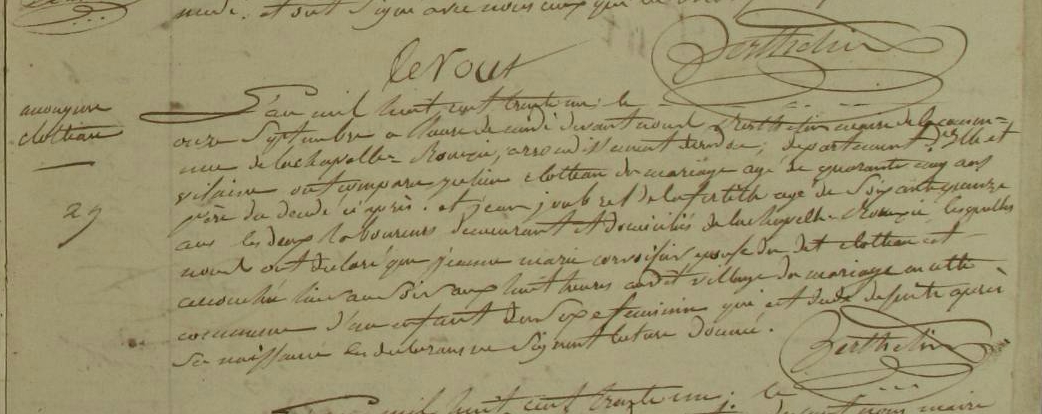 mude. et ont Signé avec nous ceux qui le
Berthelin
le vout
anonyme
clotteau
29
L'an mil huit cent trente un; le
onze Septembre a lheure de midi devant nous Berthelin maire de la commu=
nne de lachapelle=Bouzxic, arrondissement deredon; departement D'ille et
vilaine ont comparu julien clotteau du mariage agé de quarante cinq ans
père du decedé ci après. et jean joubrel de la fertilh agé de Soixante quinze
ans les deux laboureurs demeurant et domiciliés de la chapelle=Bouzxic, lesquelles
nous ont declaré que jeanne marie corvoisier epouse du dit clotteau est
accouchée hier au Soir aux huit heures audit village du mariage en cette
commune d'un enfant du Sexe feminin qui est decedé de suite après
Sa naissance les declarans ne Signent lecture donnée.
Berthelin
mil huit cent trente un; le
nous maire